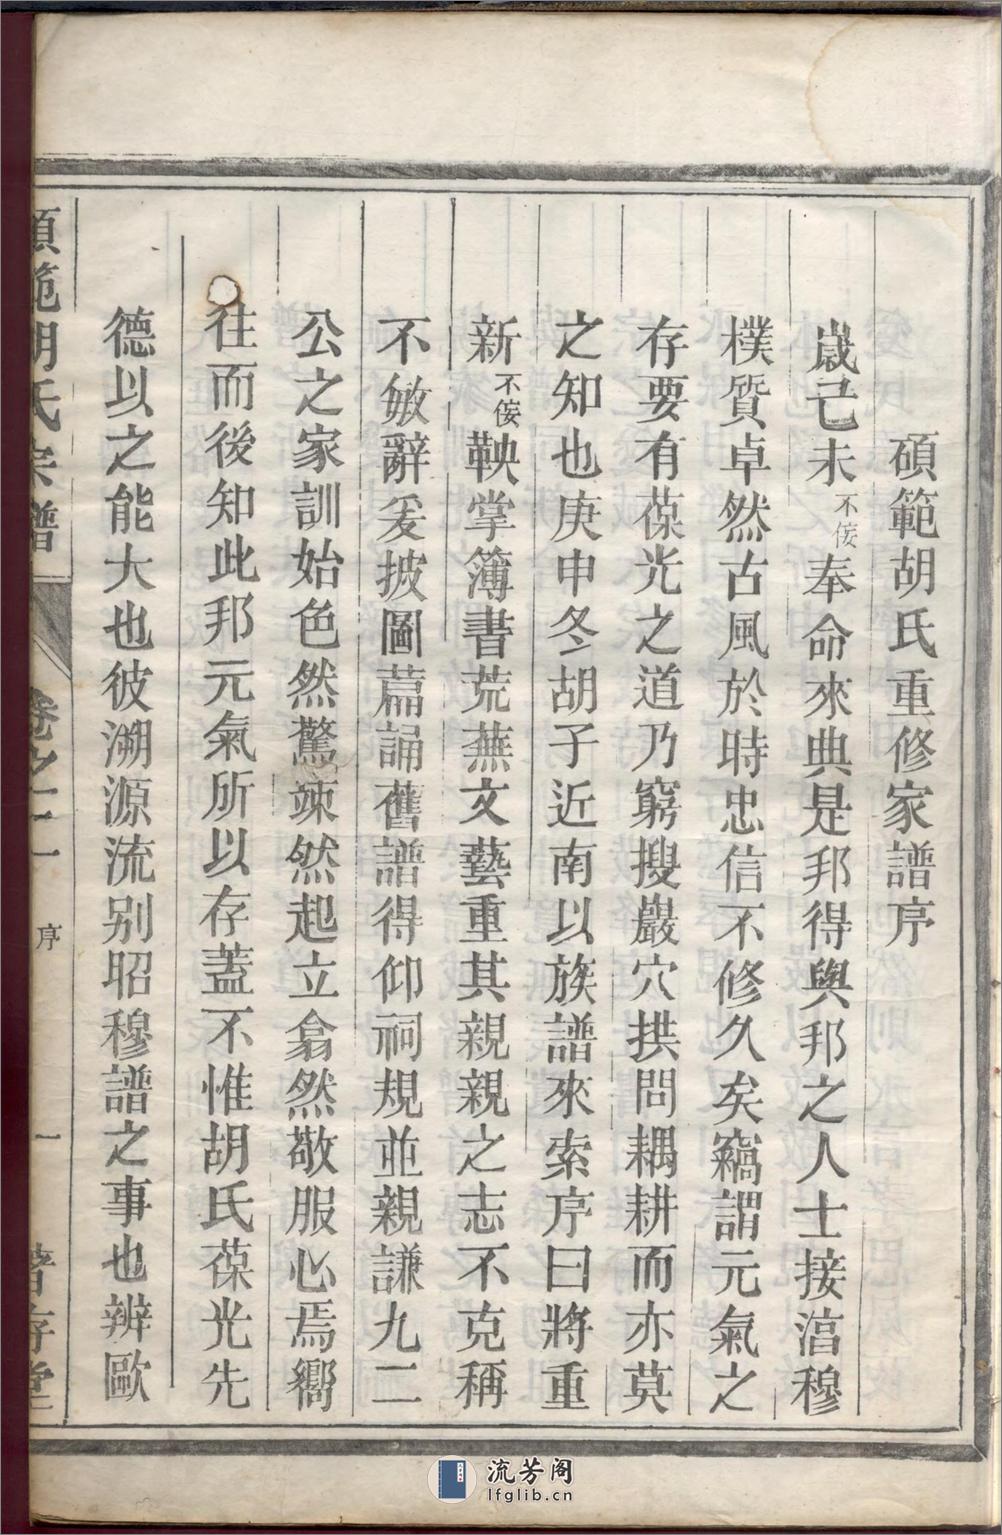 碩範胡氏重修家譜序
歲己未不侫奉命來典是邦得與邦之人士接渟穆
樸質卓然古風於時忠信不修久矣竊謂元氣之
存要有葆光之道乃窮搜巖穴拱問耦耕而亦莫
之知也庚申冬胡子近南以族譜來索序曰將重
新不侫鞅掌簿書荒蕪文藝重其親親之志不克稱
不敏辭爰披圖蒿誦舊譜得仰祠規並親謙九二
公之家訓始色然驚竦然起立翕然敬服心焉嚮
往而後知此邦元氣所以存蓋不惟胡氏葆光先
德以之能大也彼溯源流别昭穆譜之事也辨歐
碩範胡氏宗譜 卷之一 序 一
流芳阁
lfglib.cn